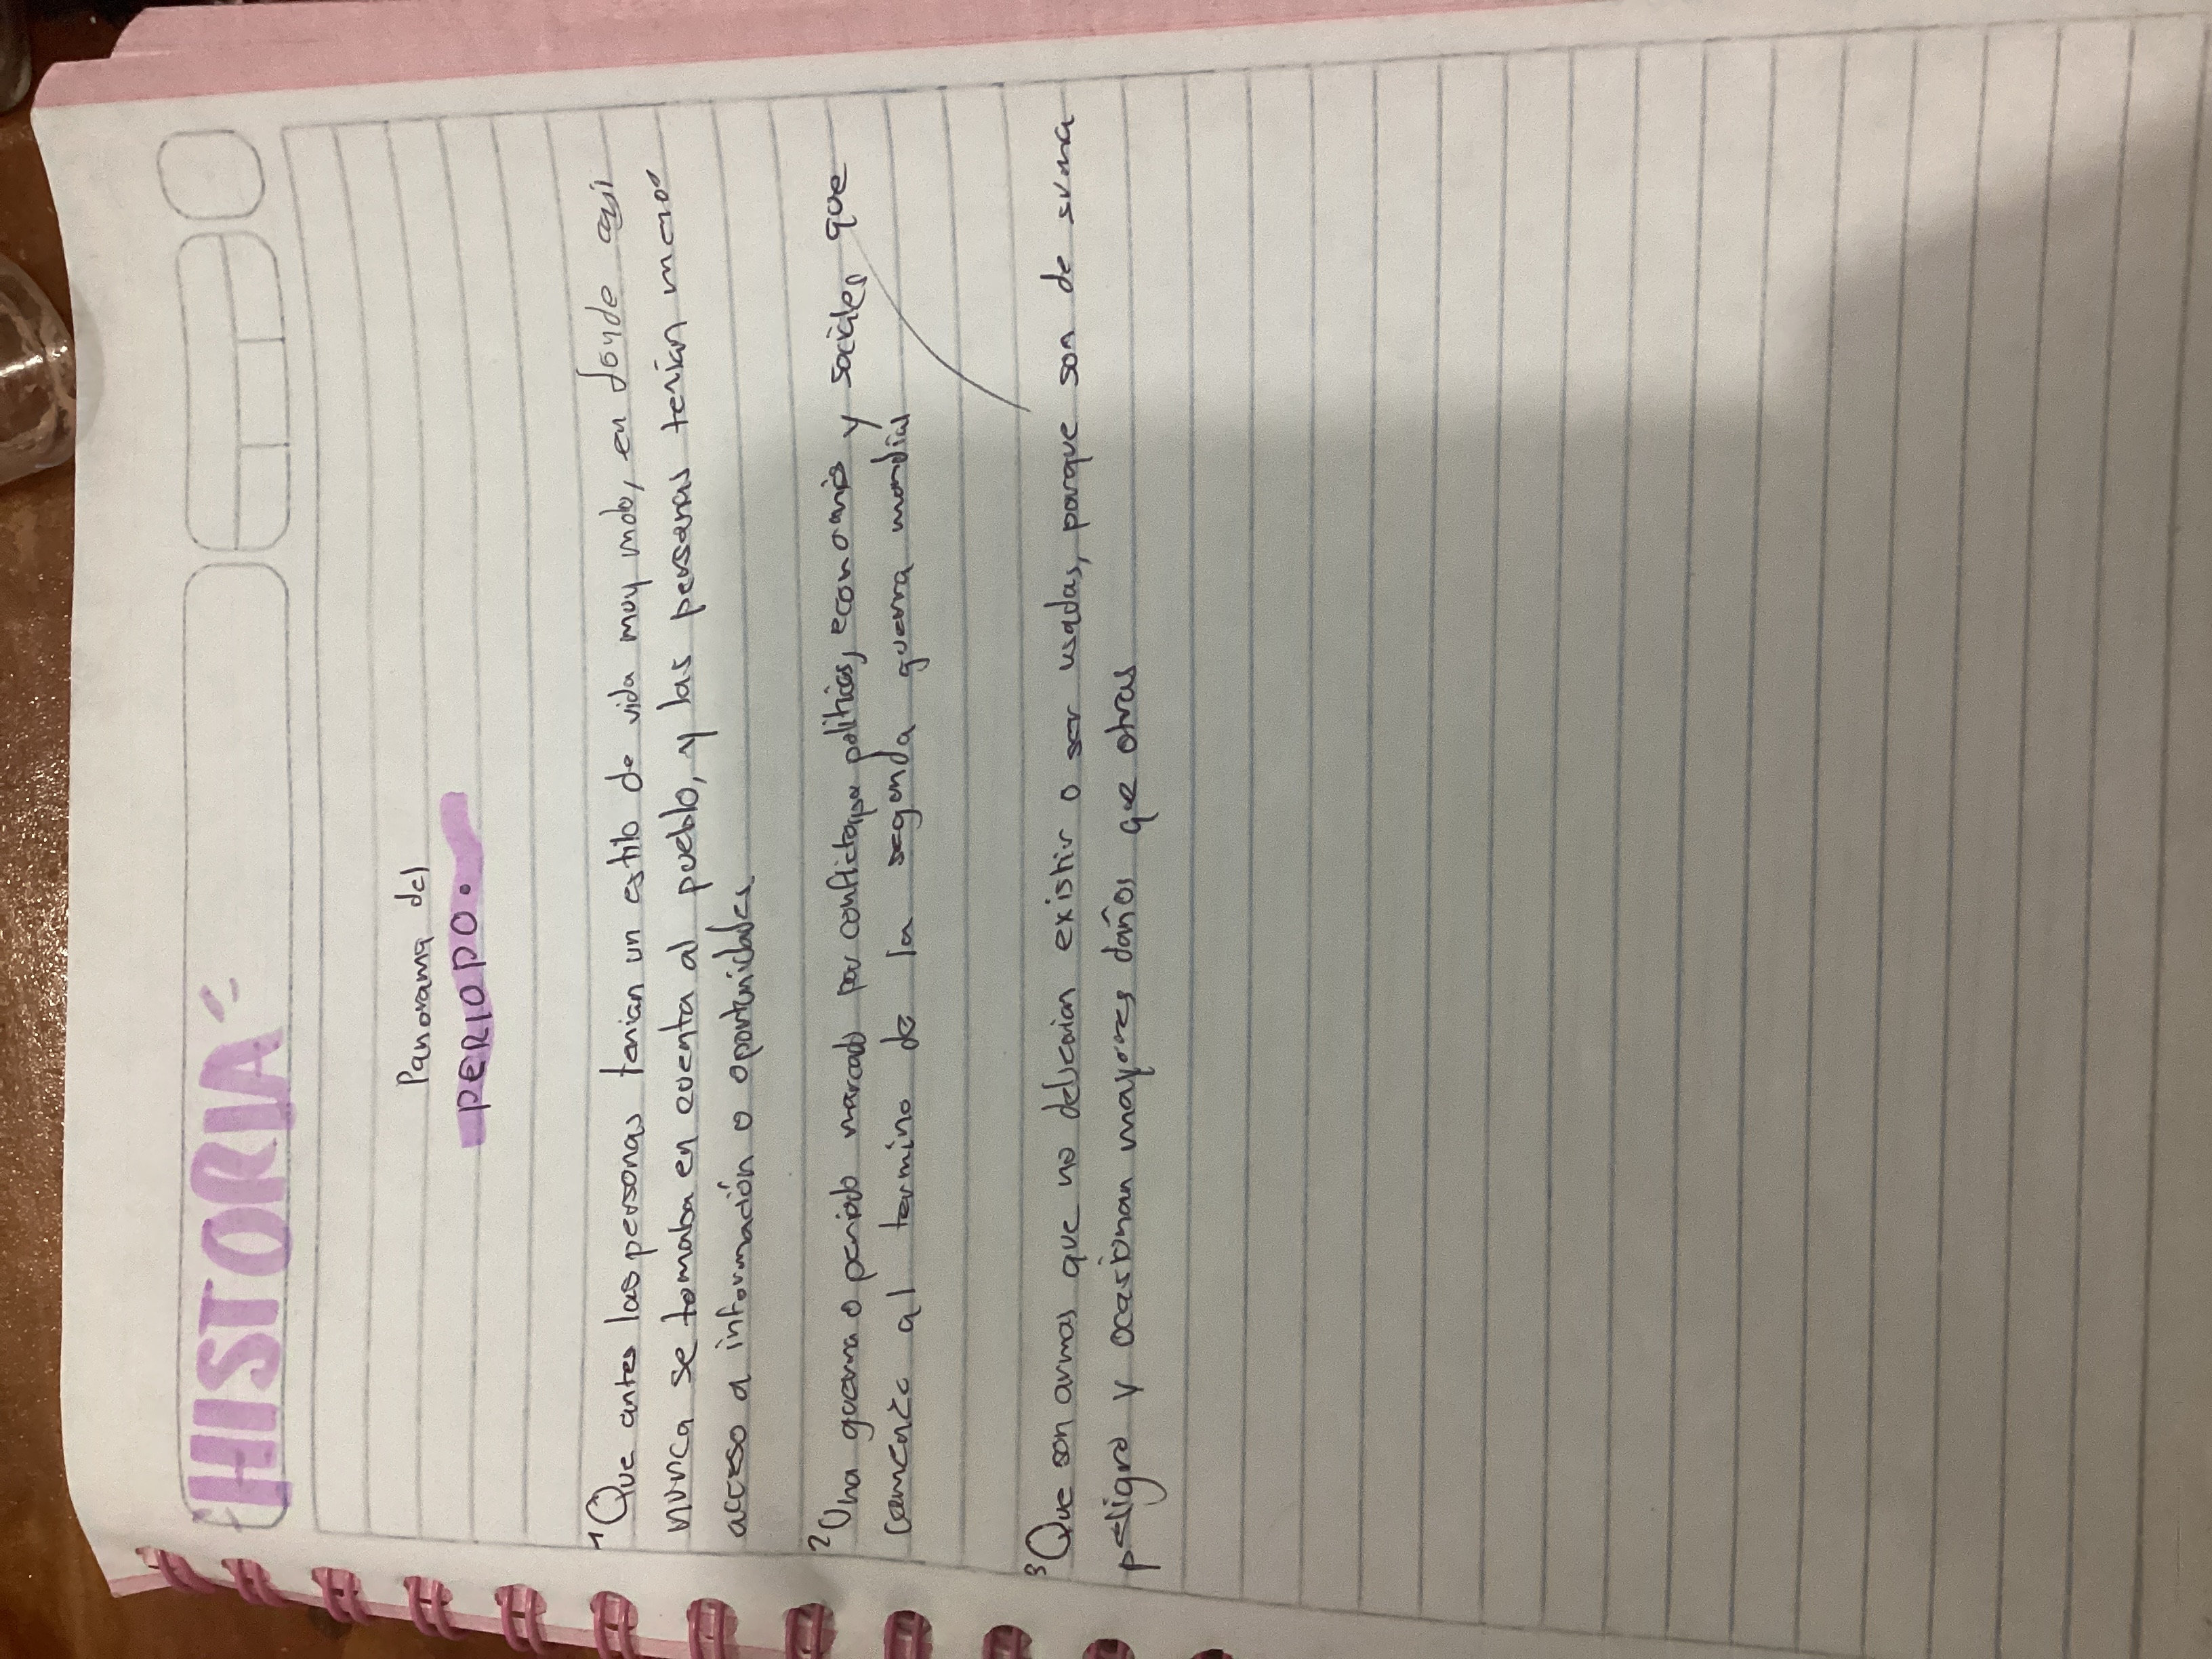 HISTORIA
Panorama del
PERIODO.
1 Que antes las personas tenian un estilo de vida muy malo, en donde casi
nunca se tomaba en cuenta al pueblo, y las personas tenian menos
acceso a información o oportunidades.
2 Una guerra o periodo marcado por conflictos politicos, economis y sociales que
comenzo al termino de la segunda guerra mundial
3 Que son armas que no deberian existir o ser usadas, porque son de suma
peligro y ocasionan mayores daños que otras